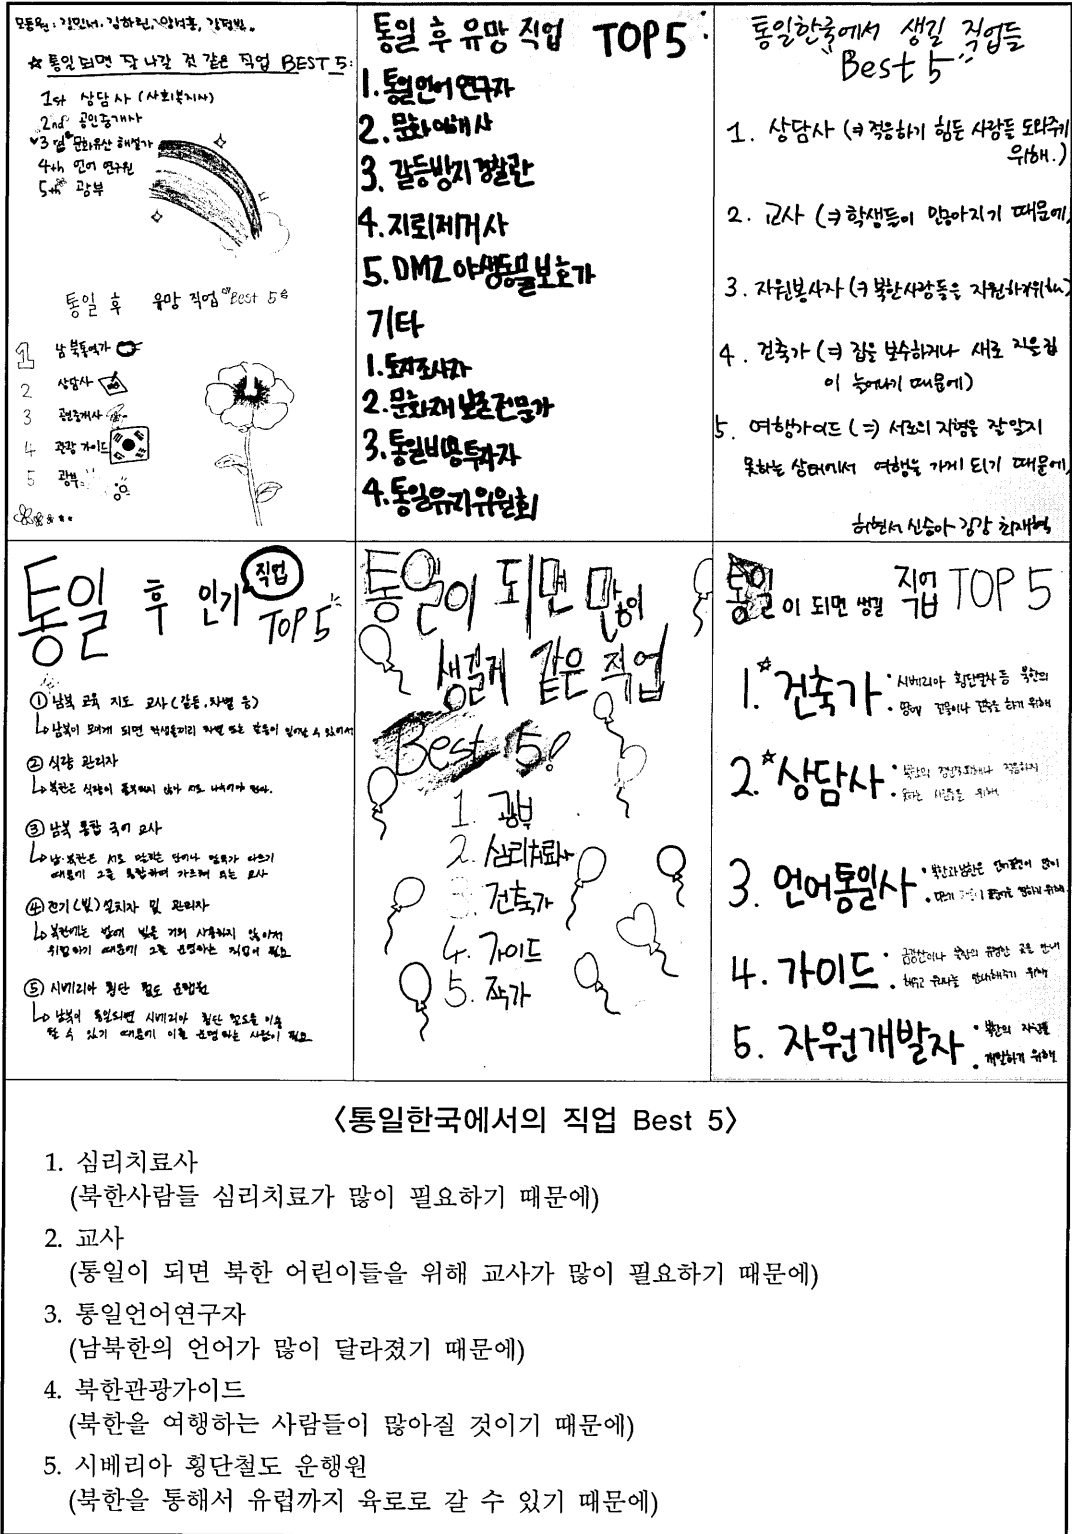 모둠원:
☆ 통일 되면 잘 나갈 것 같은 직업 BEST 5:
1st 상담사 (사회복지사)
2nd 공인중개사
문화유산 해설가
4th 언어 연구원
5th 광부
통일 후 유망 직업 Best 5
1 남북통역가
2 상담사
3 공인중개사
4 관광 가이드
5 광부
통일 후 유망 직업 TOP5
1. 통일언어 연구자
2. 문화이해사
3. 갈등방지 경찰관
4. 지뢰제거사
5. DMZ 야생동물보호가
기타
1. 토지조사자
2. 문화재 보존전문가
3. 통일비용투자자
4. 통일유지위원회
통일한국에서 생길 직업들
Best 5
1. 상담사 (⇒ 적응하기 힘든 사람들 도와주기
위해.)
2. 교사 (⇒ 학생들이 많아지기 때문에)
3. 자원봉사자 (⇒ 북한사람들을 지원하기위해)
4. 건축가 (⇒ 집을 보수하거나 새로 지은집
이 늘어나기 때문에)
5. 여행가이드 (⇒) 서로의 지형을 잘 알지
못하는 상태에서 여행을 가게 되기 때문에,
허현서 신승아 김강 최재혁
통일 후 인기 직업
TOP 5
① 남북 교육 지도 교사 (갈등, 차별 등)
↳ 남북이 모이게 되면 학생들끼리 차별 또는 갈등이 일어날 수 있어서
② 식량 관리자
↳ 북한은 식량이 풍부하지 않아 서로 나누어야 한다.
③ 남북 통합 국어 교사
↳ 남·북한은 서로 말하는 단어나 말투가 다르기
때문에 그를 통합하여 가르쳐 되는 교사
④ 전기(빛) 설치자 및 관리자
↳ 북한에는 밤에 빛을 거의 사용하지 않아서
위험하기 때문에 그를 운영하는 직업이 필요
⑤ 시베리아 횡단 철도 운행원
↳ 남북이 통일되면 시베리아 횡단 철도를 이용
할 수 있기 때문에 이를 운영하는 사람이 필요
통일이 되면 많이
생길게 같은 직업
Best 5!
1. 광부
2. 심리치료사
3. 건축가
4. 가이드
5. 작가
통일이 되면 생길 직업 TOP 5
1. 건축가: 시베리아 횡단열차 등 북한의
땅에 건물이나 건축을 하기 위해
2. 상담사:
못하는 사람들을 위해
3. 언어통일사:
4. 가이드: 금강산이나 북한의 유명한 곳을 안내
해주고 역사를 안내해주기 위해
5. 자원개발자: 북한의 자원을
개발하기 위해
〈통일한국에서의 직업 Best 5〉
1. 심리치료사
(북한사람들 심리치료가 많이 필요하기 때문에)
2. 교사
(통일이 되면 북한 어린이들을 위해 교사가 많이 필요하기 때문에)
3. 통일언어연구자
(남북한의 언어가 많이 달라졌기 때문에)
4. 북한관광가이드
(북한을 여행하는 사람들이 많아질 것이기 때문에)
5. 시베리아 횡단철도 운행원
(북한을 통해서 유럽까지 육로로 갈 수 있기 때문에)